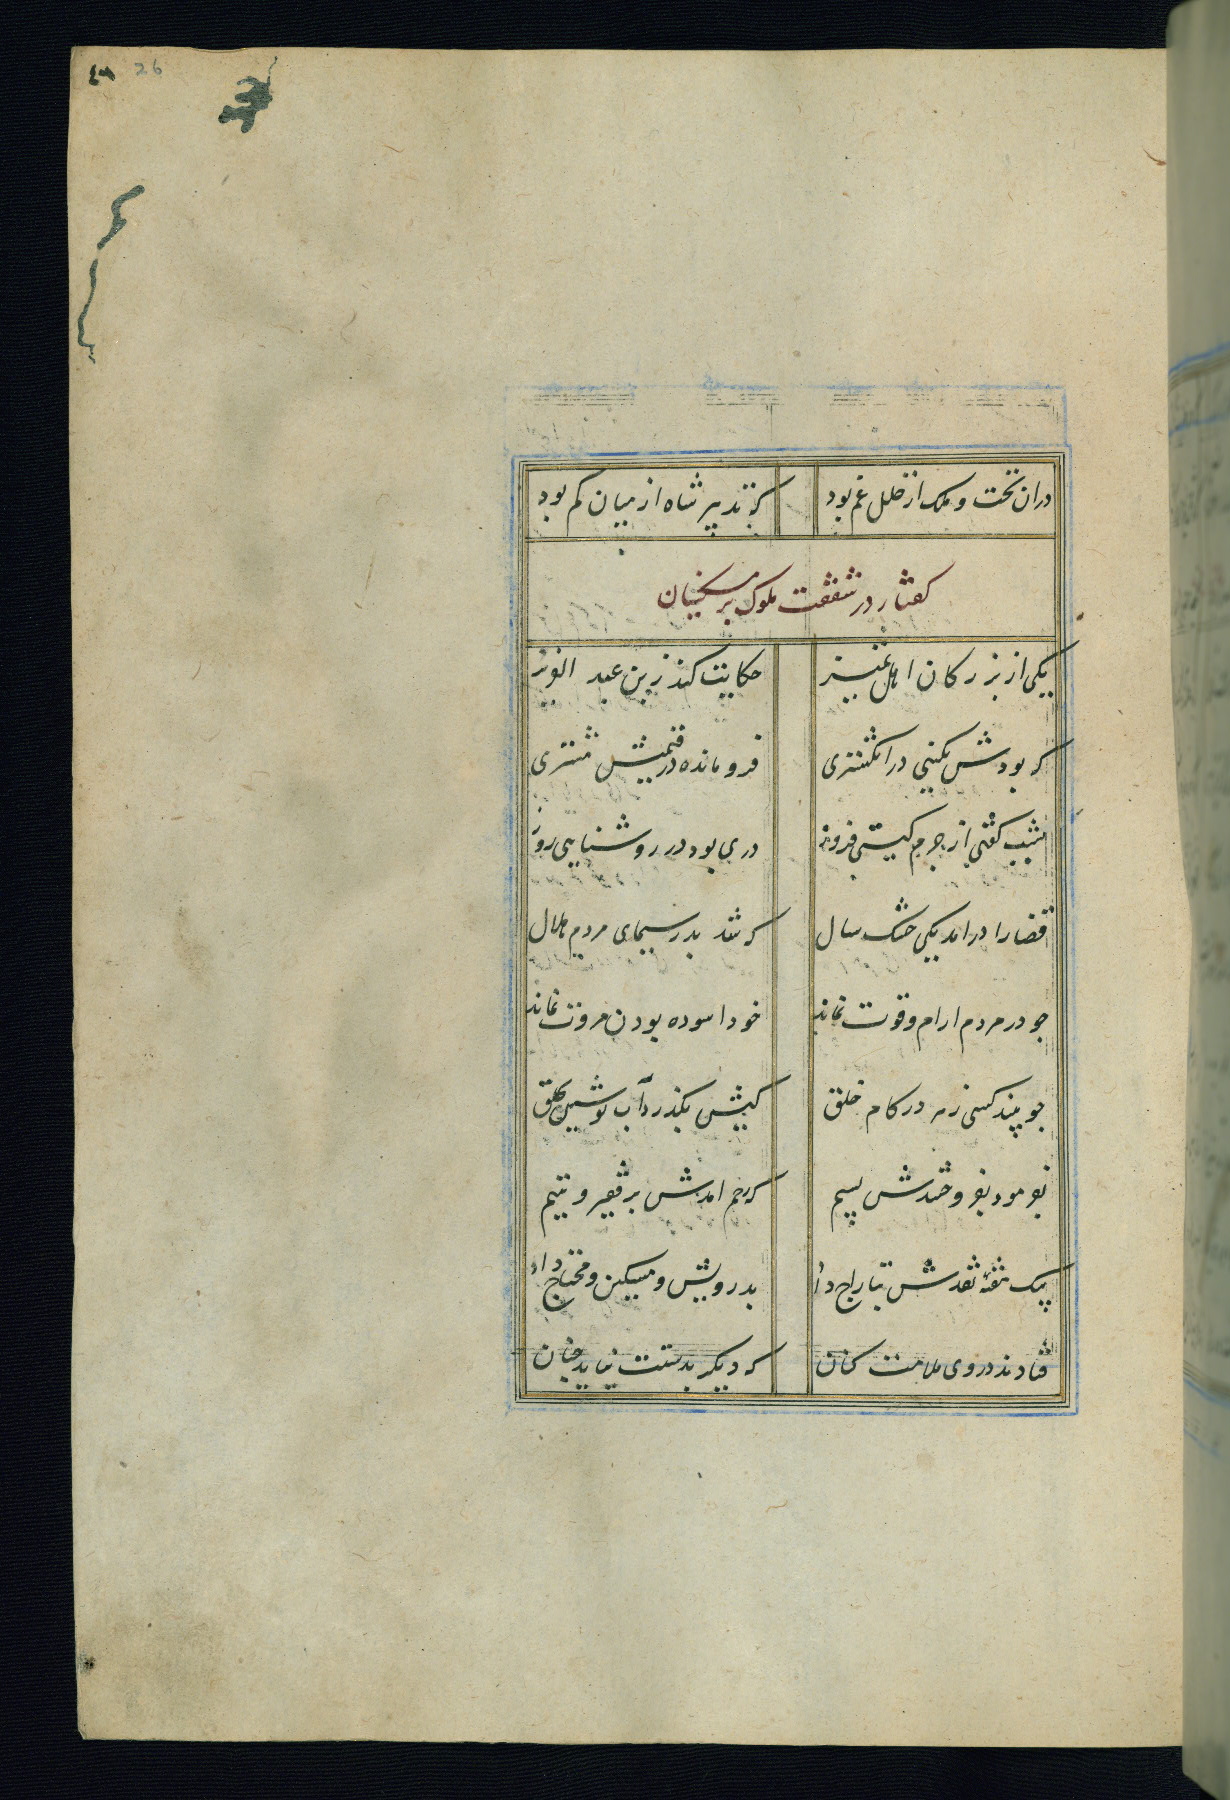 26
دران تخت و ملک از خلل غم بود کز تدبیر شاه از میان کم بود
کفتار در شفقت ملوک بر مسکینان
یکی از بزرکان اهل تمییز حکایت کند ز بن عبد العزیز
که بودش نکینی در انکشتری فرو مانده در قیمتش مشتری
بشب کفتی از جرم کیتی فروز دری بود در روشنایی روز
قضا را درامد یکی خشک سال که شد بدر سیمای مردم هلال
جو در مردم ارام و قوت نماند خود اسوده بودن مروت نماند
جو بیند کسی زهر در کام خلق کیش بکذرد آب نوشین بحلق
بفرمود بفروختندش بسیم که رحم امدش بر فقیر و یتیم
بیک هفته نقدش بتاراج داد بدرویش و مسکین و محتاج داد
فتادند در وی ملامت کنان که دیکر بدستت نیاید جنان